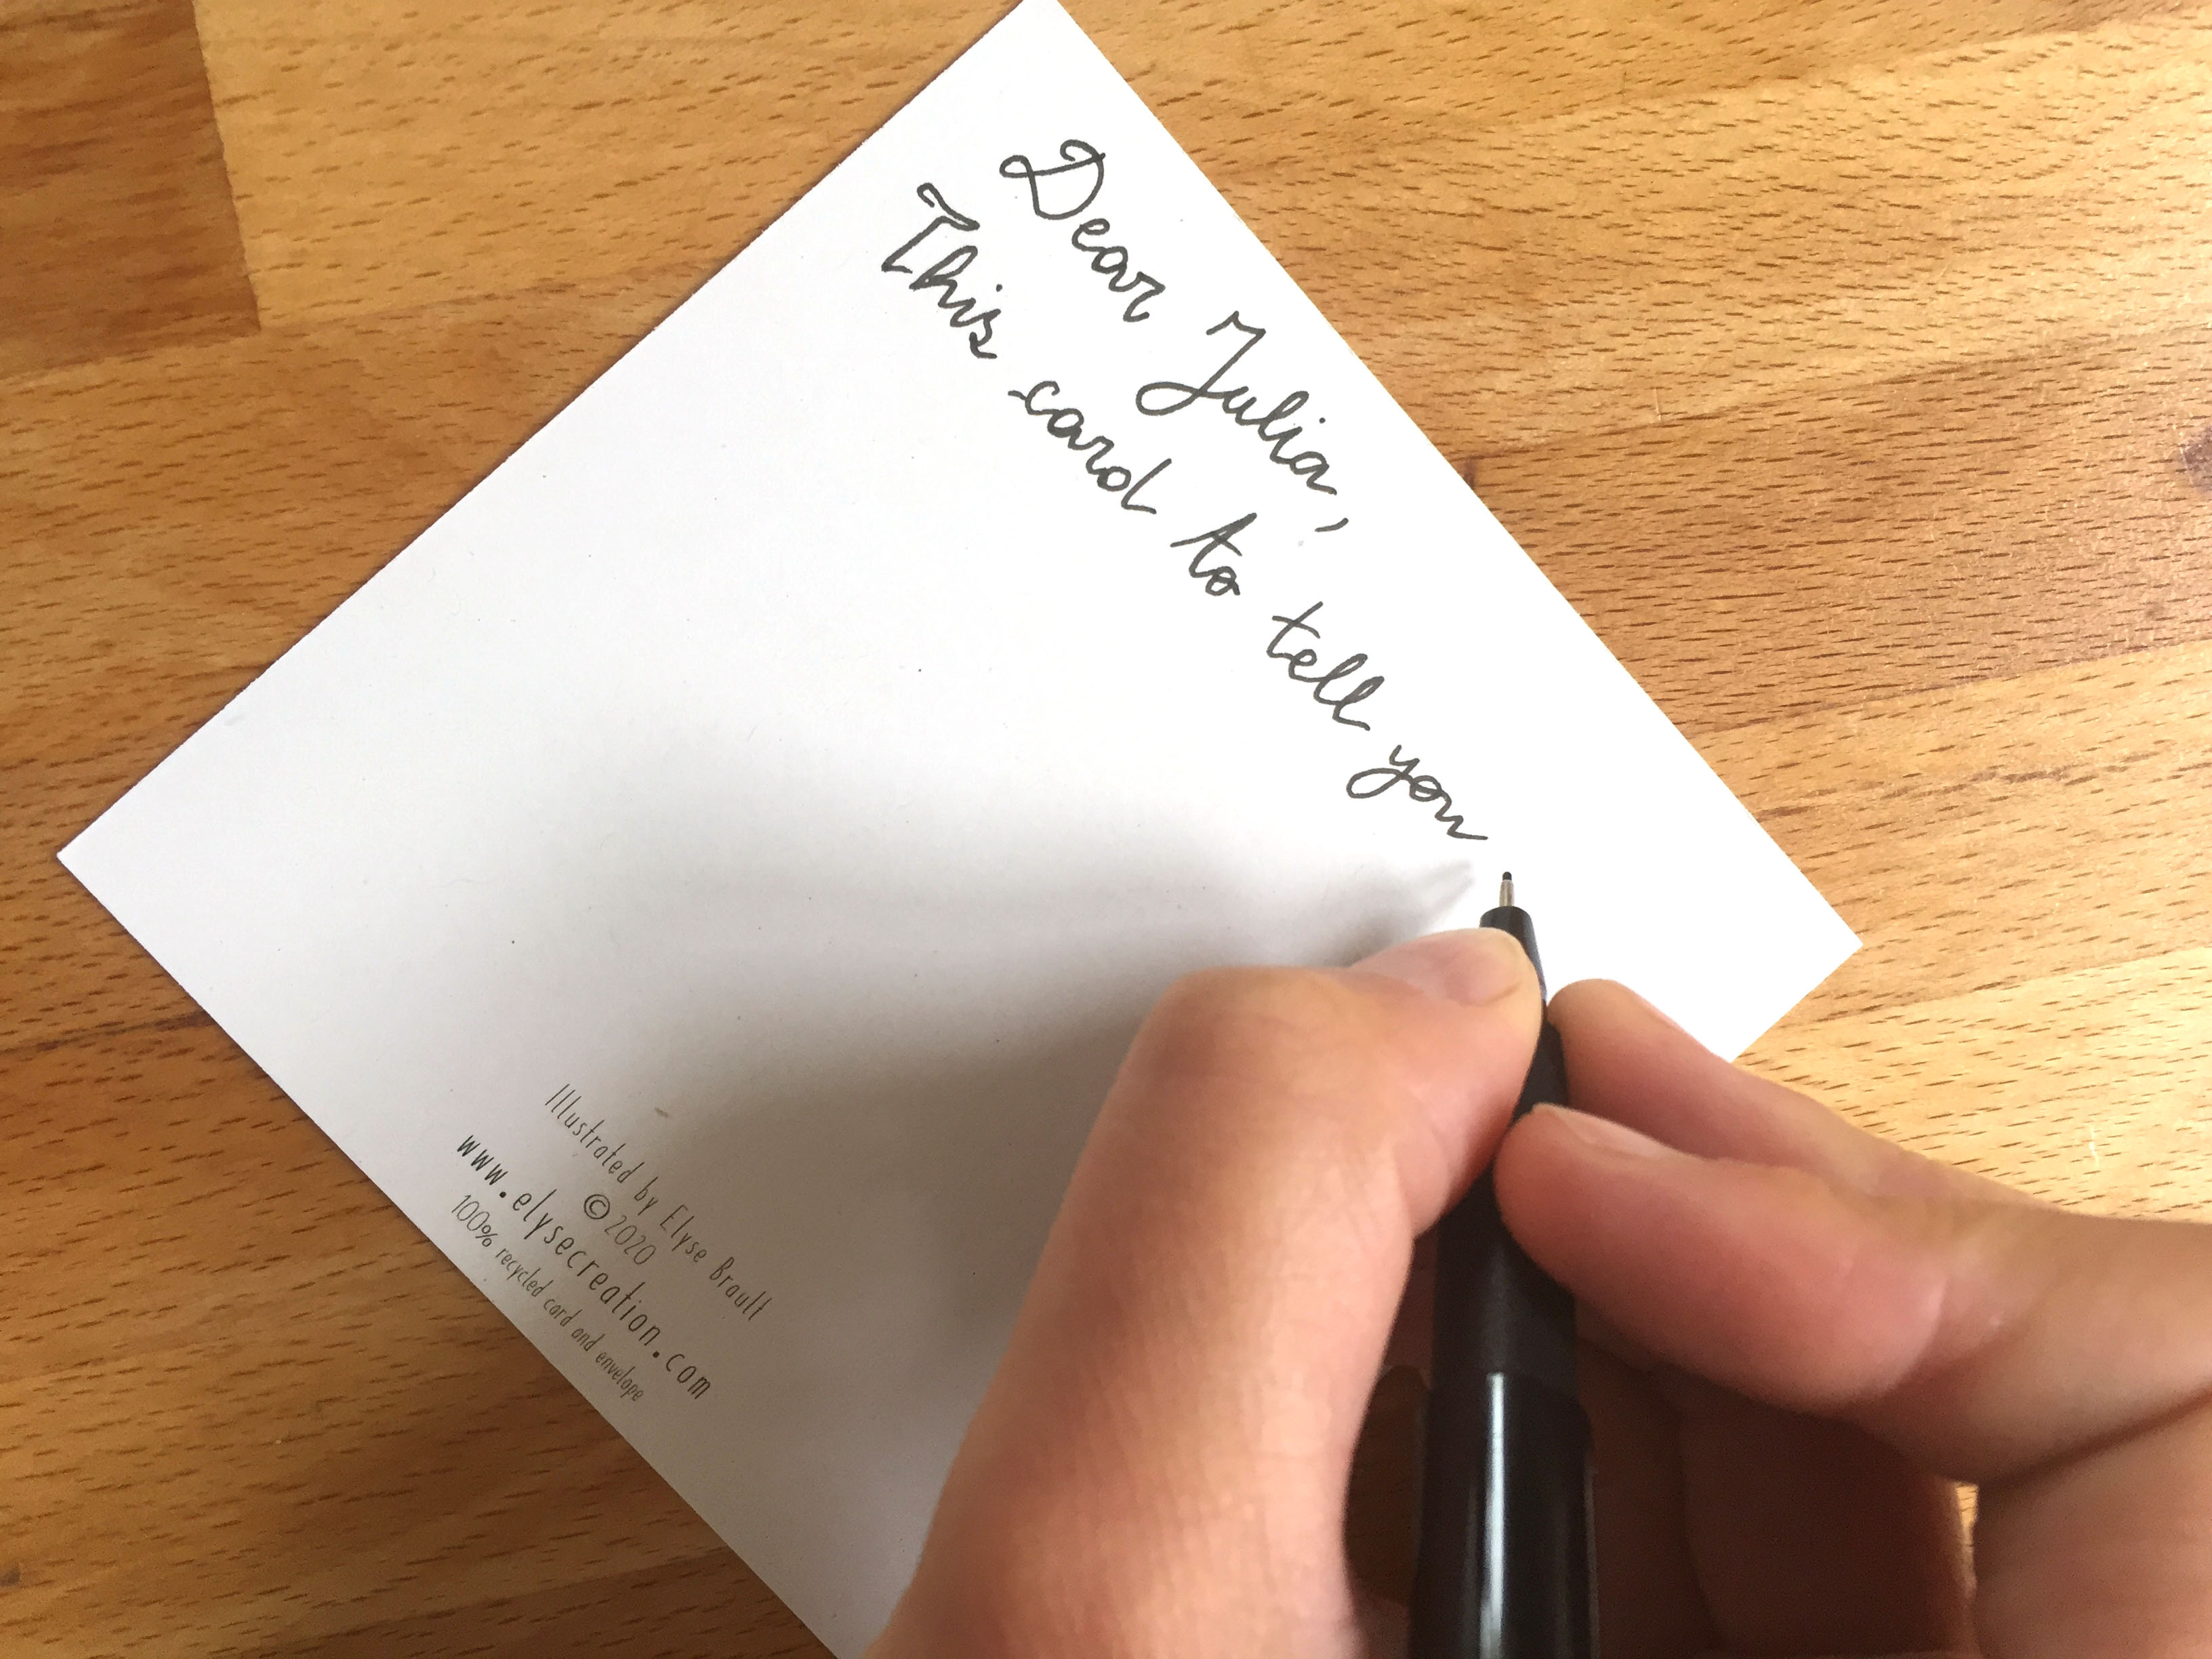 Dear Julia,
This card to tell you
Illustrated by Elyse Brault
©2020
www.elysecreation.com
100% recycled card and envelope